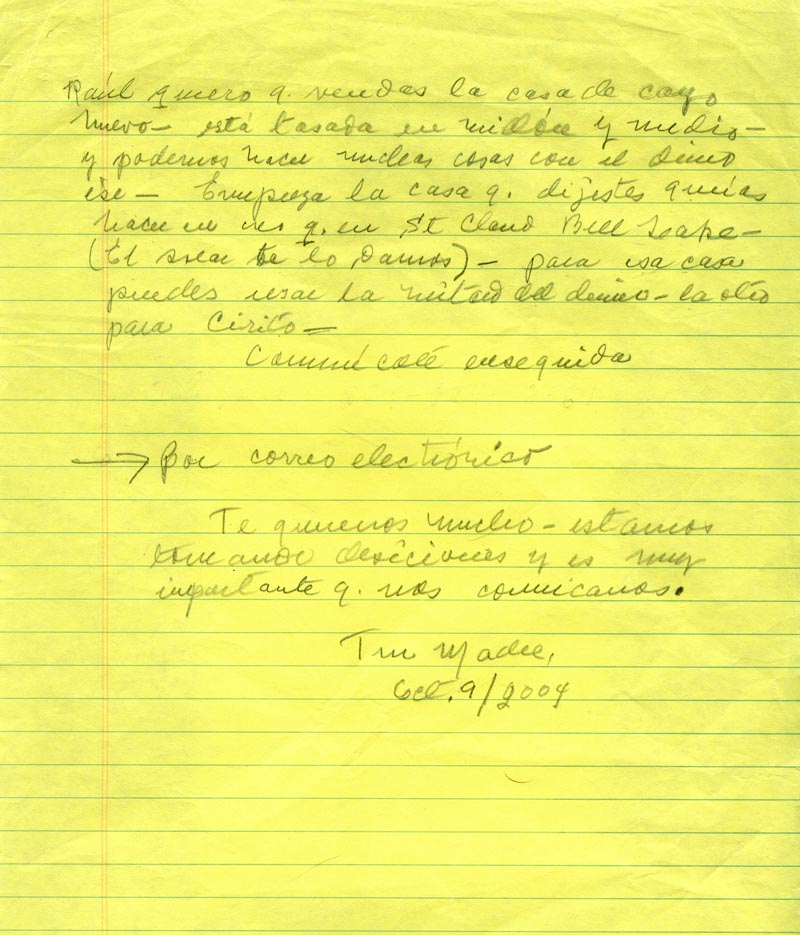 Raúl quiero q. vendas la casa de cayo
hueso — está tasada en millón y medio —
y podemos hacer muchas cosas con el dinero
ese — Empieza la casa q. dijistes querías
hacer en q. en St Cloud Bell
(El solar te lo damos) — para esa casa
puedes usar la mitad del dinero — la otra
para Cirito —
Comunícate enseguida
→ Por correo electrónico
Te queremos mucho — estamos
tomando desiciones y es muy
importante q. nos comunicamos.
Tu Madre,
Oct. 9/2004